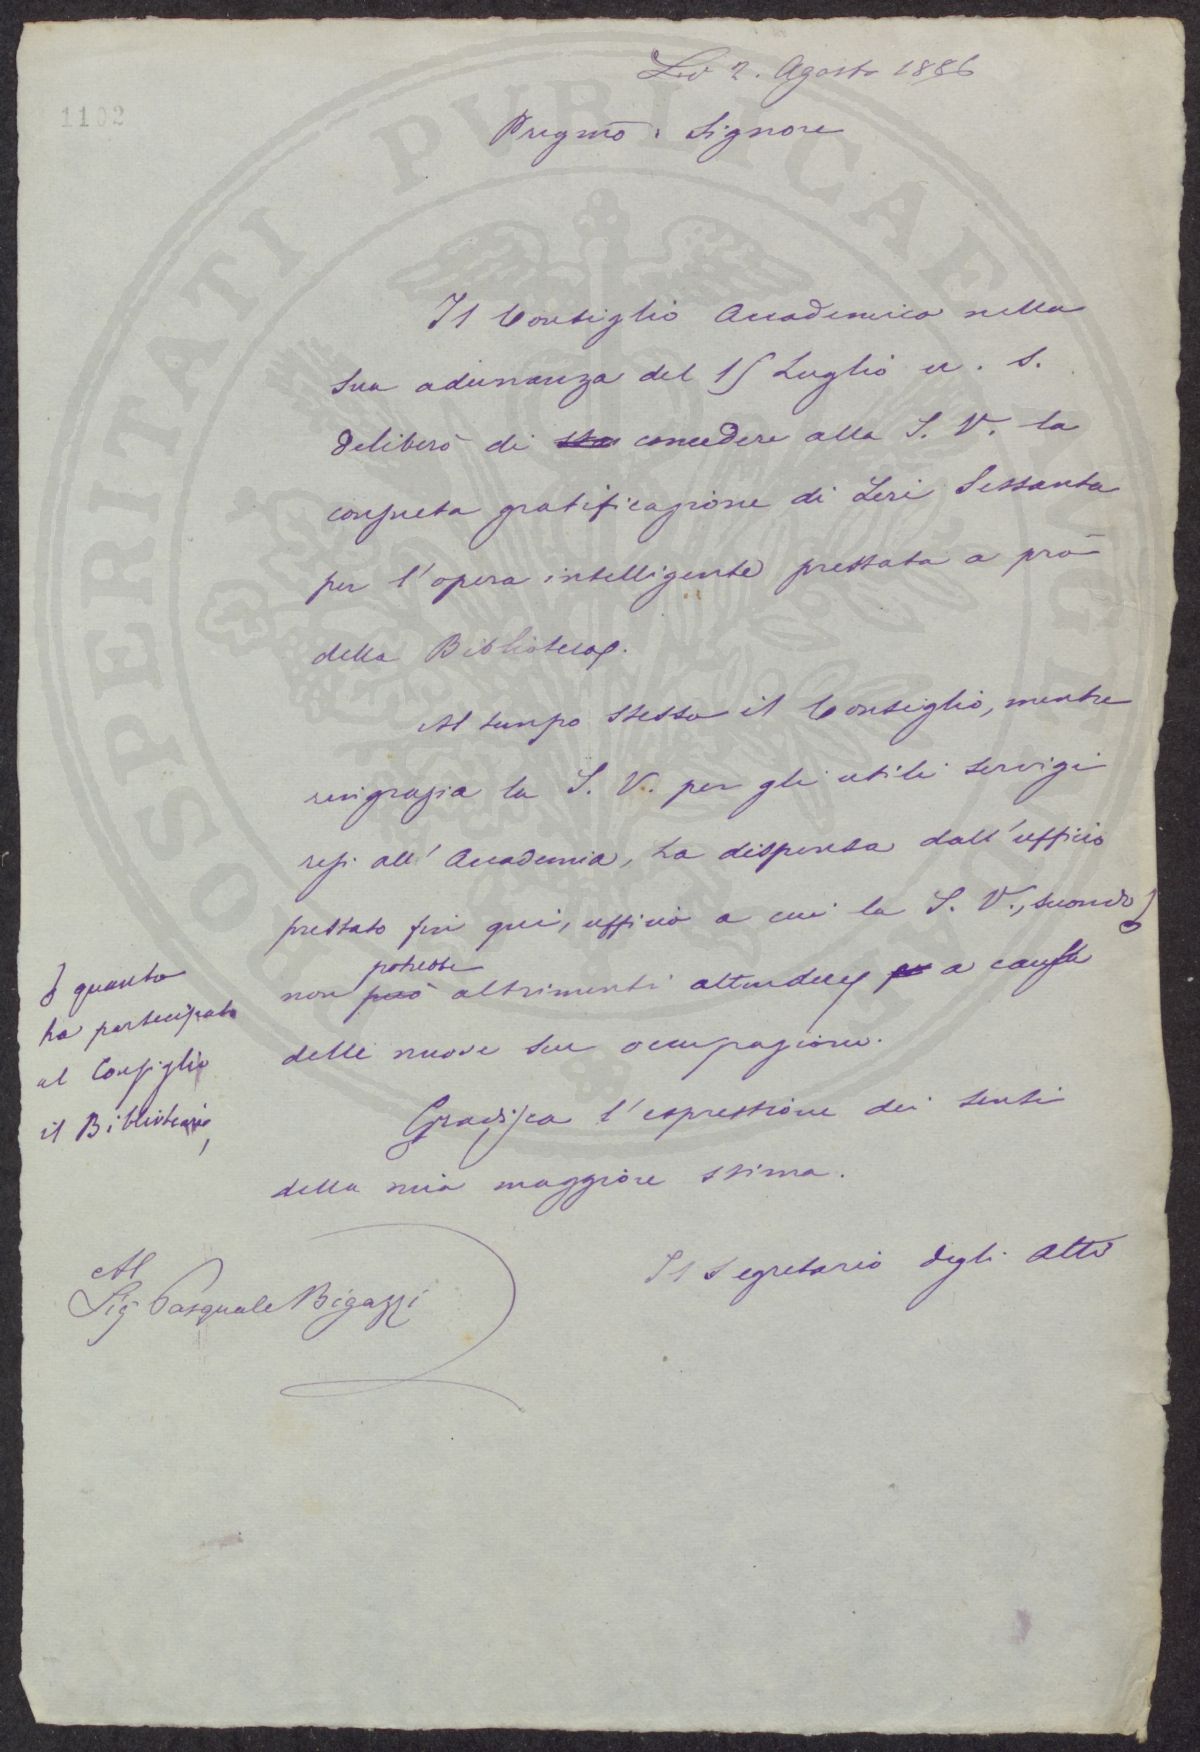 Lì 2. Agosto 1886
1102
Pregmo. Signore
Il Consiglio Accademico nella
sua adunanza del 15 Luglio u. s.
deliberò di concedere alla S. V. la
consueta gratificazione di Lire Sessanta
per l'opera intelligente prestata a prò
della Biblioteca.
Al tempo stesso il Consiglio, mentre
ringrazia la S. V. per gli utili servigi
resi all'Accademia, la dispensa dall'ufficio
prestato fin qui, ufficio a cui la S. V., secondo
quanto
ha partecipato
al Consiglio
il Bibliotecario,
potrebbe
non può altrimenti attendere a causa
delle nuove sue occupazioni.
Gradisca l'espressione dei sensi
della mia maggiore stima.
Il Segretario degli Atti
Al
Sig Pasquale Bigazzi
PROSPERITATI PVBLICAE AVGENDAE